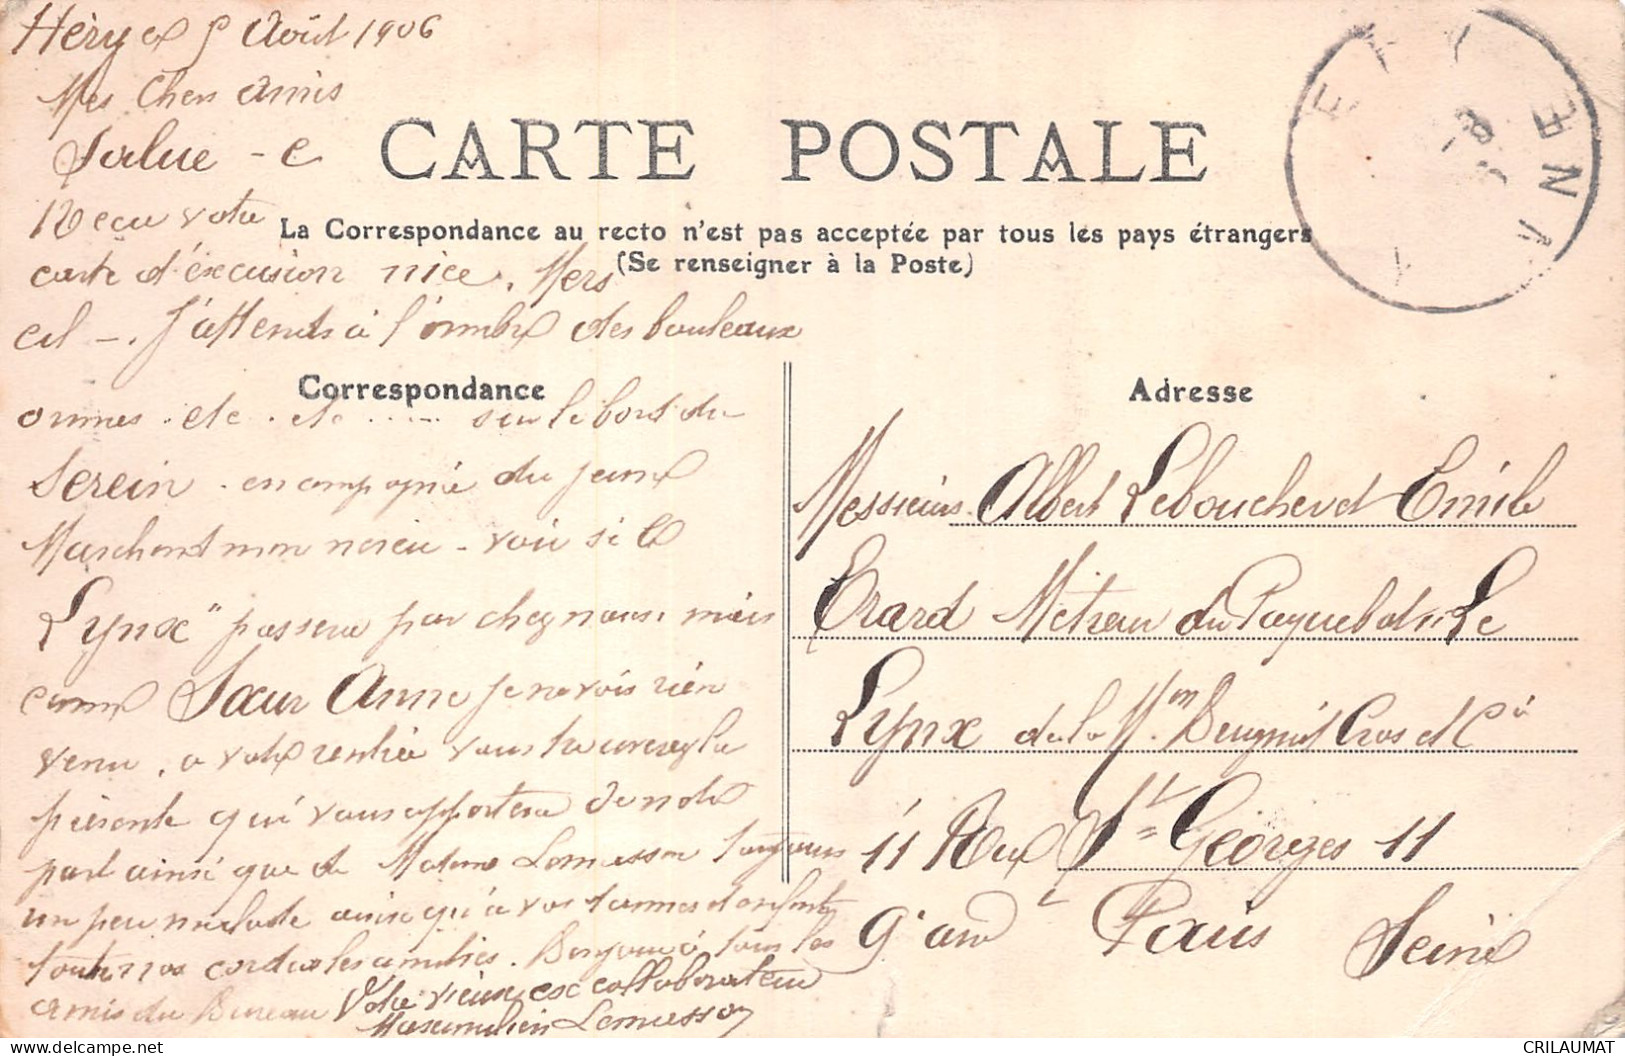 Héry el 9 Août 1906
Mes Chers amis
Salue - e
CARTE POSTALE
Reçu votre
La Correspondance au recto n'est pas acceptée par tous les pays étrangers
(Se renseigner à la Poste)
carte d'éxcusion nice. Mers
cil -. J'attends à l'ombre des bouleaux
Correspondance
Adresse
ormes . etc . etc ...... sur le bord du
Serein . en compagnie du jeune
Marchand mon neveu - voir si le
Lynx" passera par chez nous. mais
comme Sœur Anne je ne vois rien
venu . a votre rentrée vous trouverez la
présente qui vous apportera de notre
part ainsi que de Madame Lemasson toujours
un peu malade ainsi qu'à vos dames et enfants
toutes nos cordiales amitiés. Bonjour à tous les
amis du Bureau Votre vieux ex collaborateur
Maximilien Lemasson
Messieurs Albert Leboucher et Emile
Erard Metreur du Paquebot "Le
Lynx de la Mon Beugniet Cros et Cie
11 Rue St Georges 11
9e arrd t Paris Seine
HERY
YONNE
CRILAUMAT